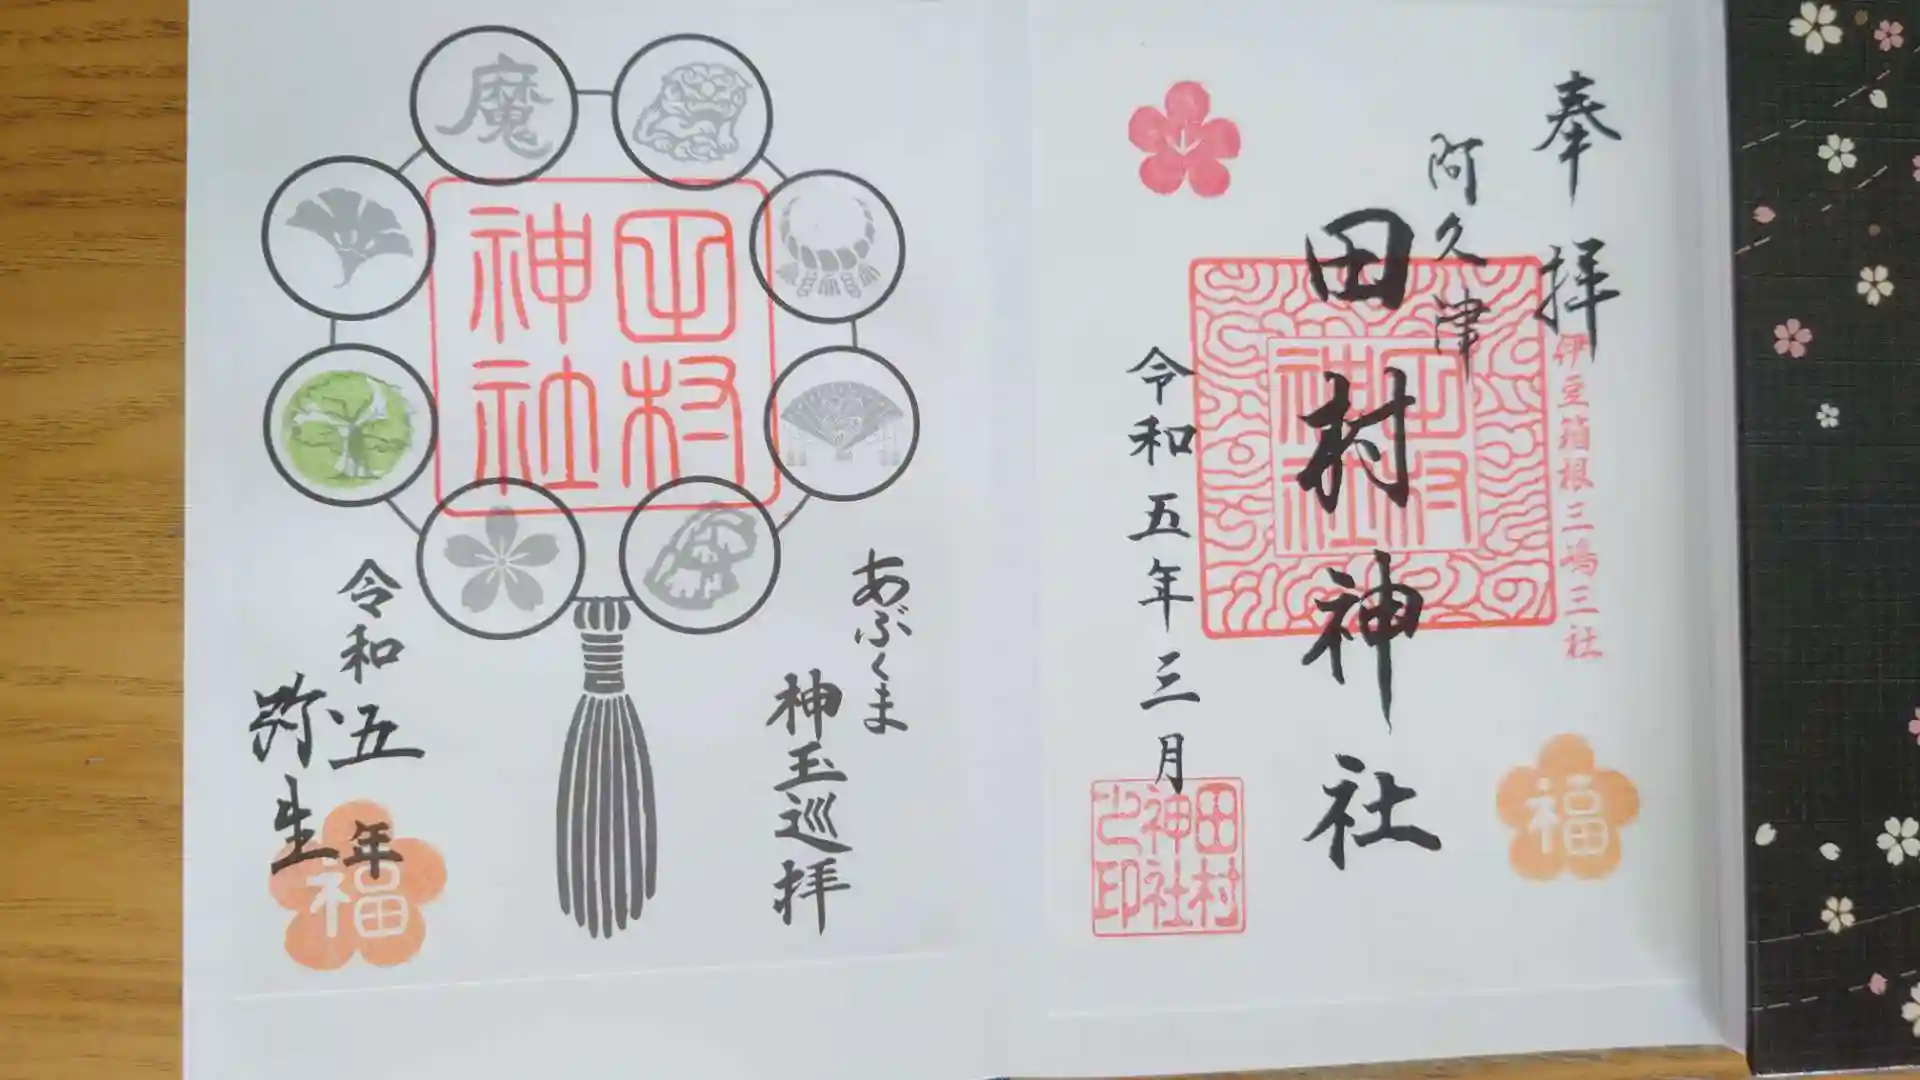 奉拝
伊豆箱根三嶋三社
阿久津
田村神社
田村神社
令和五年三月
田村神社之印
福
あぶくま
神玉巡拝
魔
田村神社
令和五年
弥生
福